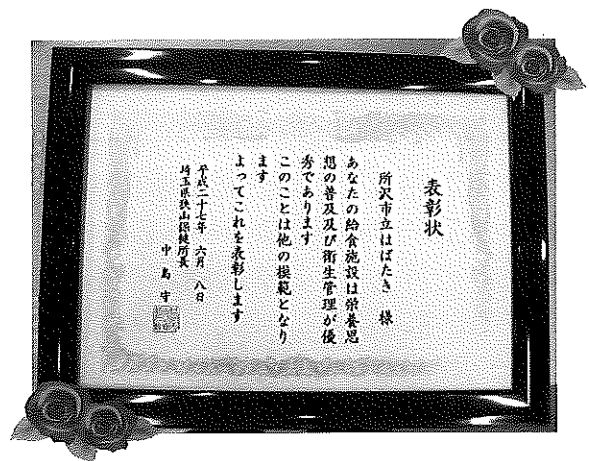 表彰状
所沢市立はばたき 様
あなたの給食施設は栄養思
想の普及及び衛生管理が優
秀であります
このことは他の模範となり
ます
よってこれを表彰します
平成二十七年 六月 八日
埼玉県狭山保健所長
中島 守